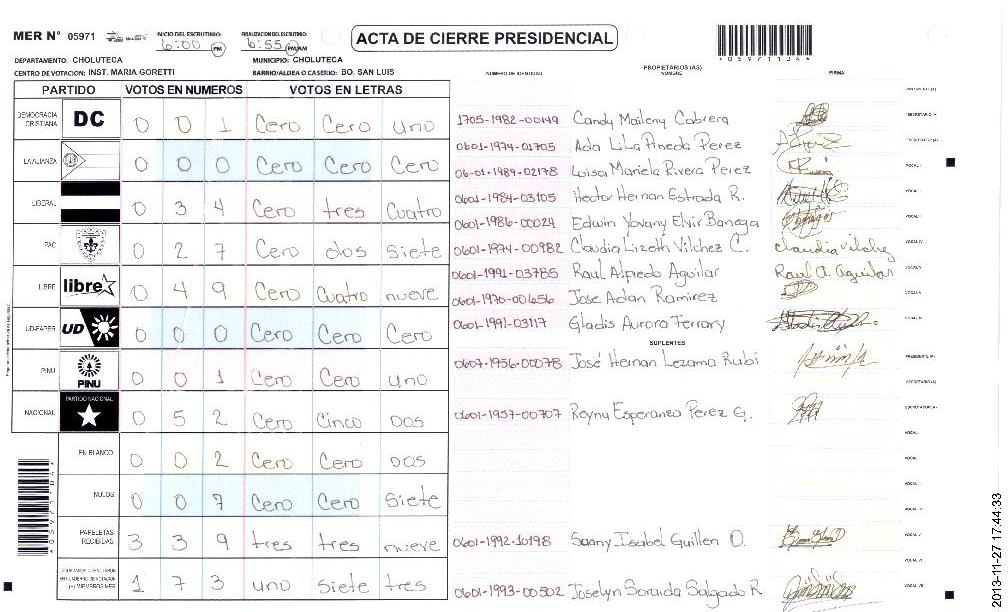 MER N° 05971
INICIO DEL ESCRUTINIO: 6:00 PM
FINALIZACION DEL ESCRUTINIO: 6:55 PM/AM
ACTA DE CIERRE PRESIDENCIAL
*05971104*
DEPARTAMENTO: CHOLUTECA
MUNICIPIO: CHOLUTECA
CENTRO DE VOTACION: INST. MARIA GORETTI
BARRIO/ALDEA O CASERIO: BO. SAN LUIS
NUMERO DE IDENTIDAD
PROPIETARIOS (AS)
NOMBRE
FIRMA
PARTIDO VOTOS EN NUMEROS VOTOS EN LETRAS
DEMOCRACIA CRISTIANA DC 0 0 1 Cero Cero uno
LA ALIANZA 0 0 0 Cero Cero Cero
LIBERAL 0 3 4 Cero tres Cuatro
PAC 0 2 7 Cero dos Siete
LIBRE libre 0 4 9 Cero Cuatro nueve
UD-FAPER UD 0 0 0 Cero Cero Cero
PINU PINU 0 0 1 Cero Cero uno
NACIONAL PARTIDO NACIONAL 0 5 2 Cero Cinco Dos
EN BLANCO 0 0 2 Cero Cero Dos
NULOS 0 0 7 Cero Cero Siete
PAPELETAS RECIBIDAS 3 3 9 tres tres nueve
1 7 3 uno siete tres
1705-1982-00149 Candy Maileny Cabrera
0601-1974-01705 Ada Lila Pineda Perez
06-01-1989-02178 Luisa Mariela Rivera Perez
0601-1984-03105 Hector Hernan Estrada R.
0601-1986-00024 Edwin Yovany Elvir Banega
0601-1974-00982 Claudia Lizeth Vilchez C. Claudia Vilchez
0601-1991-03785 Raul Alfredo Aguilar Raul A. Aguilar
0601-1970-00656 Jose Adan Ramirez
0601-1991-03117 Gladis Aurora Ferrary
SUPLENTES
0607-1956-00078 José Hernan Lezama Rubi
0601-1957-00707 Reyna Esperanza Perez G.
0601-1992-10198 Saany Isabel Guillen O.
0601-1993-00502 Joselyn Soraida Salgado R
2013-11-27 17:44:33